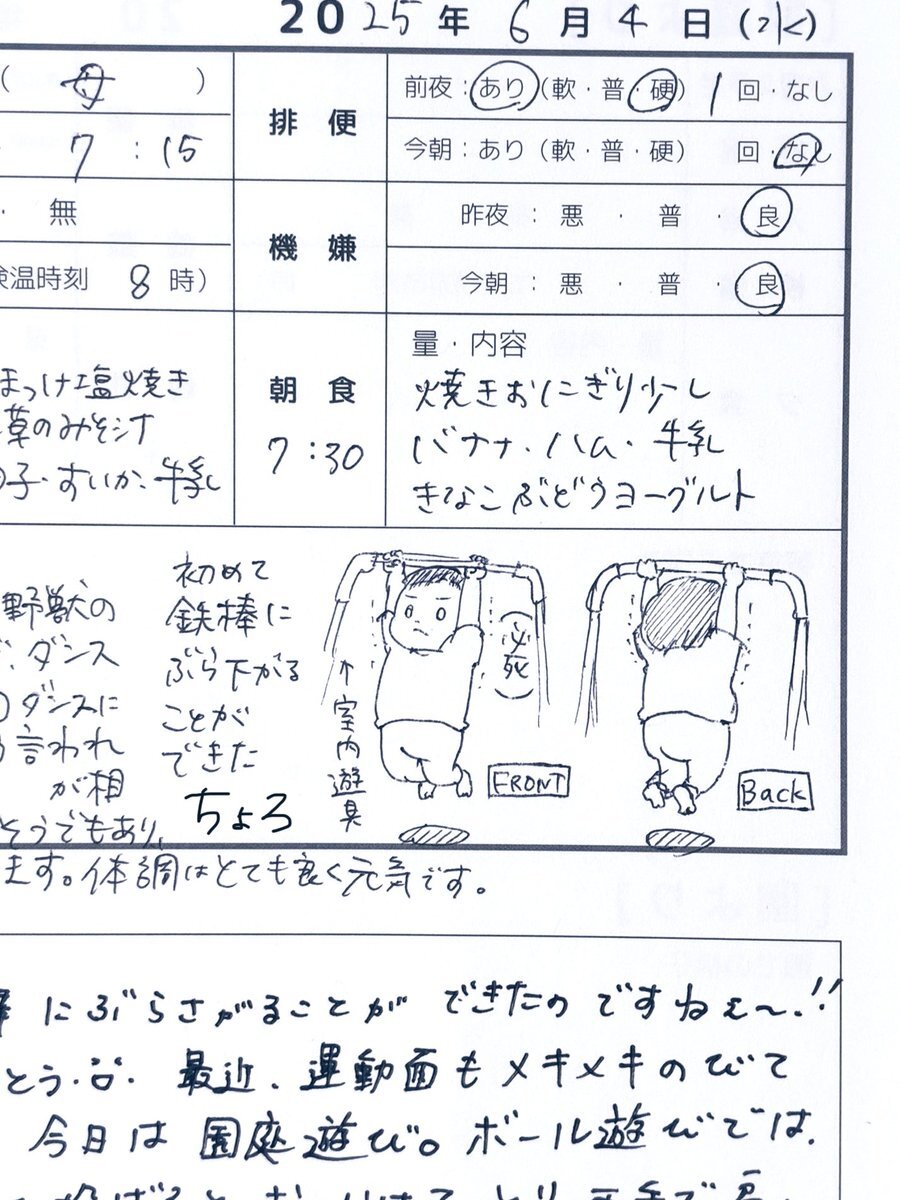 2025年 6月 4日 (水)
( 母 )
排 便
前夜：あり(軟・普・硬) 1 回・なし
7 : 15
今朝：あり(軟・普・硬) 回・なし
・ 無
機 嫌
昨夜：悪 ・ 普 ・ 良
検温時刻 8 時)
今朝：悪 ・ 普 ・ 良
ほっけ塩焼き
草のみそ汁
子・すいか・牛乳
朝 食
7：30
量・内容
焼きおにぎり少し
バナナ・ハム・牛乳
きなこぶどうヨーグルト
野獣の
ダンス
ダンスに
言われ
が相
そうでもあり、
ます。体調はとても良く元気です。
初めて
鉄棒に
ぶら下がる
ことが
できた
ちょろ
↑室内遊具
必死
FRONT
Back
にぶらさがることが できたのですねぇ〜!!
とう。最近、運動面もメキメキのびて
今日は園庭遊び。ボール遊びでは、